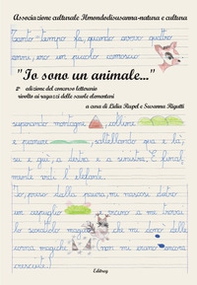 Associazione culturale Ilmondodisusanna-natura e cultura
Tanto tempo fa, quando avevo quattro
anni, ero un piccolo
"Io sono un animale..."
2ª edizione del concorso letterario
rivolto ai ragazzi delle scuole elementari
a cura di Lidia Rispol e Susanna Rigutti
superando montagne, colline
e pianure, saltellando qua e là;
su e giù, a destra e a sinistra. E, final,
mente vidi l'elefante.
Io, preso dalla paura, mi nascosi dietro
un cespuglio
lo scoiattolo magico che mi donò delle
erbe magiche
cresciute.
Editing